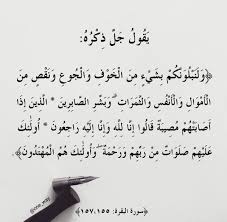 يَقُولُ جَلَّ ذِكْرُهُ:
﴿وَلَنَبْلُوَنَّكُمْ بِشَيْءٍ مِنَ الْخَوْفِ وَالْجُوعِ وَنَقْصٍ مِنَ
الْأَمْوَالِ وَالْأَنْفُسِ وَالثَّمَرَاتِ ۗ وَبَشِّرِ الصَّابِرِينَ * الَّذِينَ إِذَا
أَصَابَتْهُمْ مُصِيبَةٌ قَالُوا إِنَّا لِلَّهِ وَإِنَّا إِلَيْهِ رَاجِعُونَ * أُولَٰئِكَ
عَلَيْهِمْ صَلَوَاتٌ مِنْ رَبِّهِمْ وَرَحْمَةٌ ۖ وَأُولَٰئِكَ هُمُ الْمُهْتَدُونَ﴾.
﴿سورة البقرة: ١٥٥، ١٥٧﴾